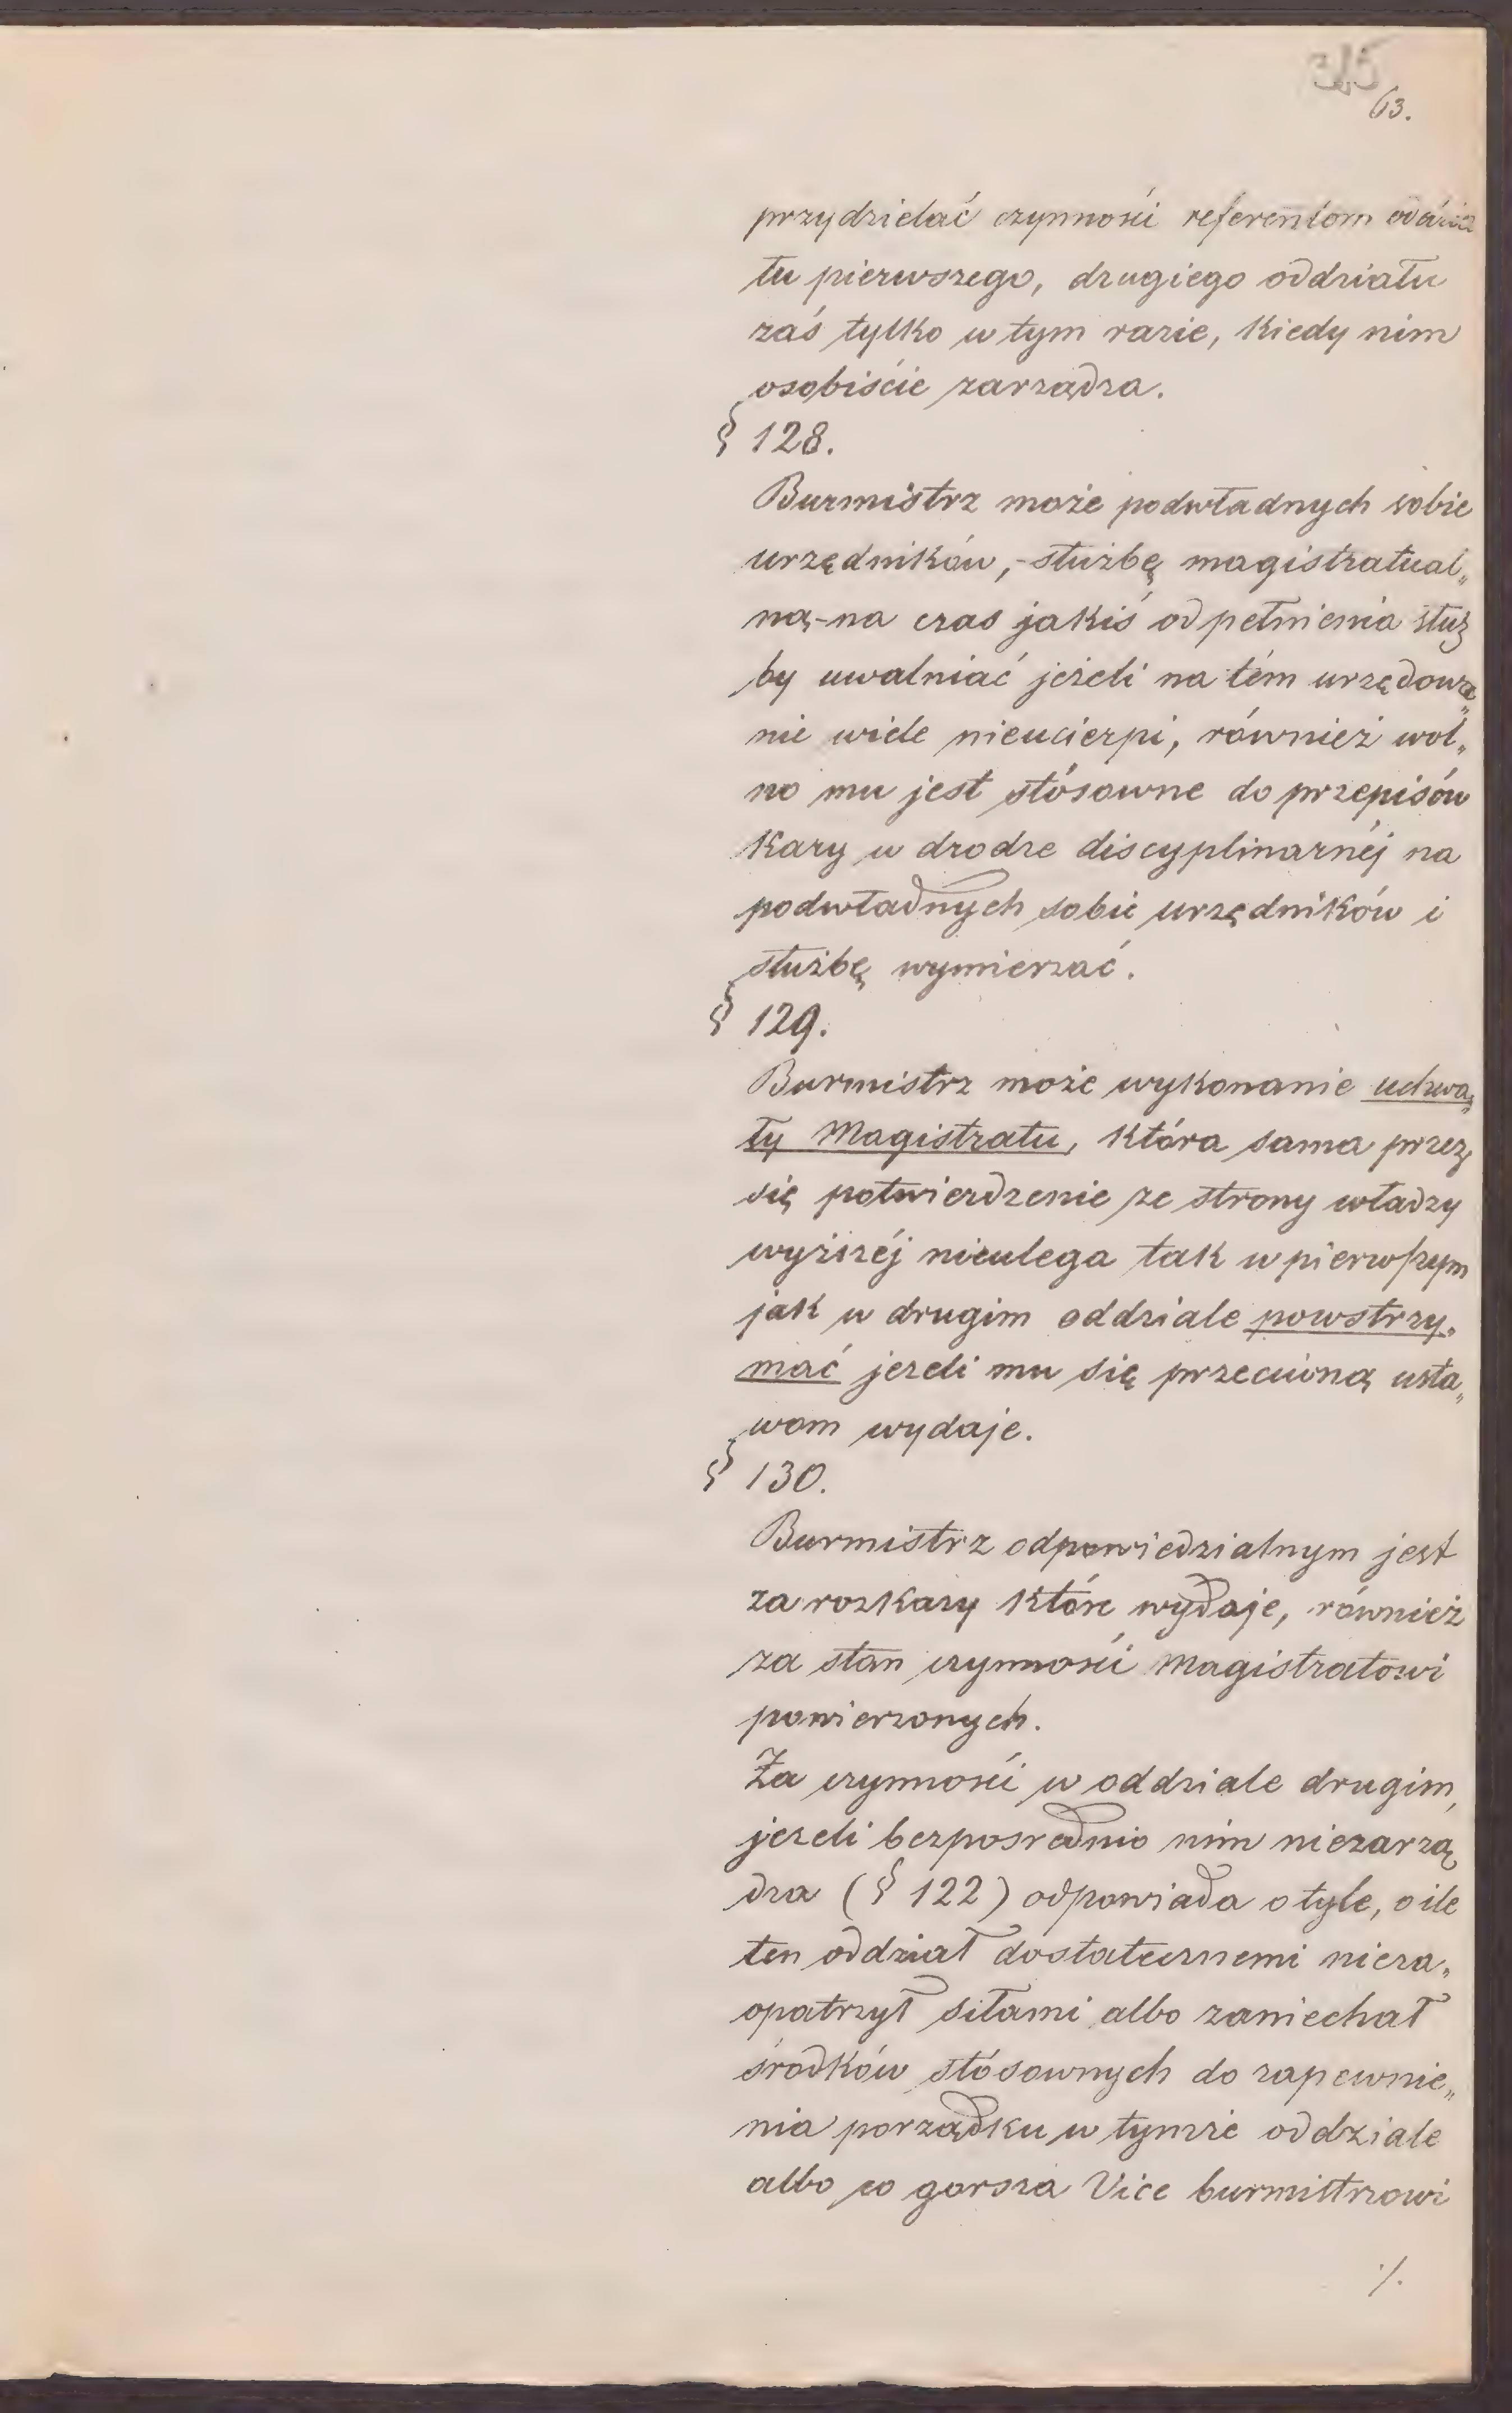 63.
przydzielać czynności referentom oddzia
łu pierwszego, drugiego oddziału
zaś tylko w tym razie, kiedy nim
osobiście zarządza.
§ 128.
Burmistrz może podwładnych sobie
urzędników,-służbę magistratual„
ną-na czas jakiś od pełnienia służ
by uwalniać jeżeli na tém urzędowa„
nie wiele nieucierpi, również wol„
no mu jest stósowne do przepisów
kary w drodze discyplinarnéj na
podwładnych sobie urzędników i
służbę wymierzać.
§ 129.
Burmistrz może wykonanie uchwa„
ły Magistratu, która sama przez
się potwierdzenie ze strony władzy
wyższéj nieulega tak w pierwszym
jak w drugim oddziale powstrzy„
mać jeżeli mu się przeciwną usta„
wom wydaje.
§ 130.
Burmistrz odpowiedzialnym jest
za rozkazy które wydaje, również
za stan czynności Magistratowi
powierzonych.
Za czynności w oddziale drugim,
jeżeli bezpośrednio nim niezarzą
dza (§ 122) odpowiada o tyle, o ile
ten oddział dostatecznemi nieza„
opatrzył siłami albo zaniechał
środków stósownych do zapewnie„
nia porządku w tymże oddziale
albo co gorsza Vice burmistrzowi
./.